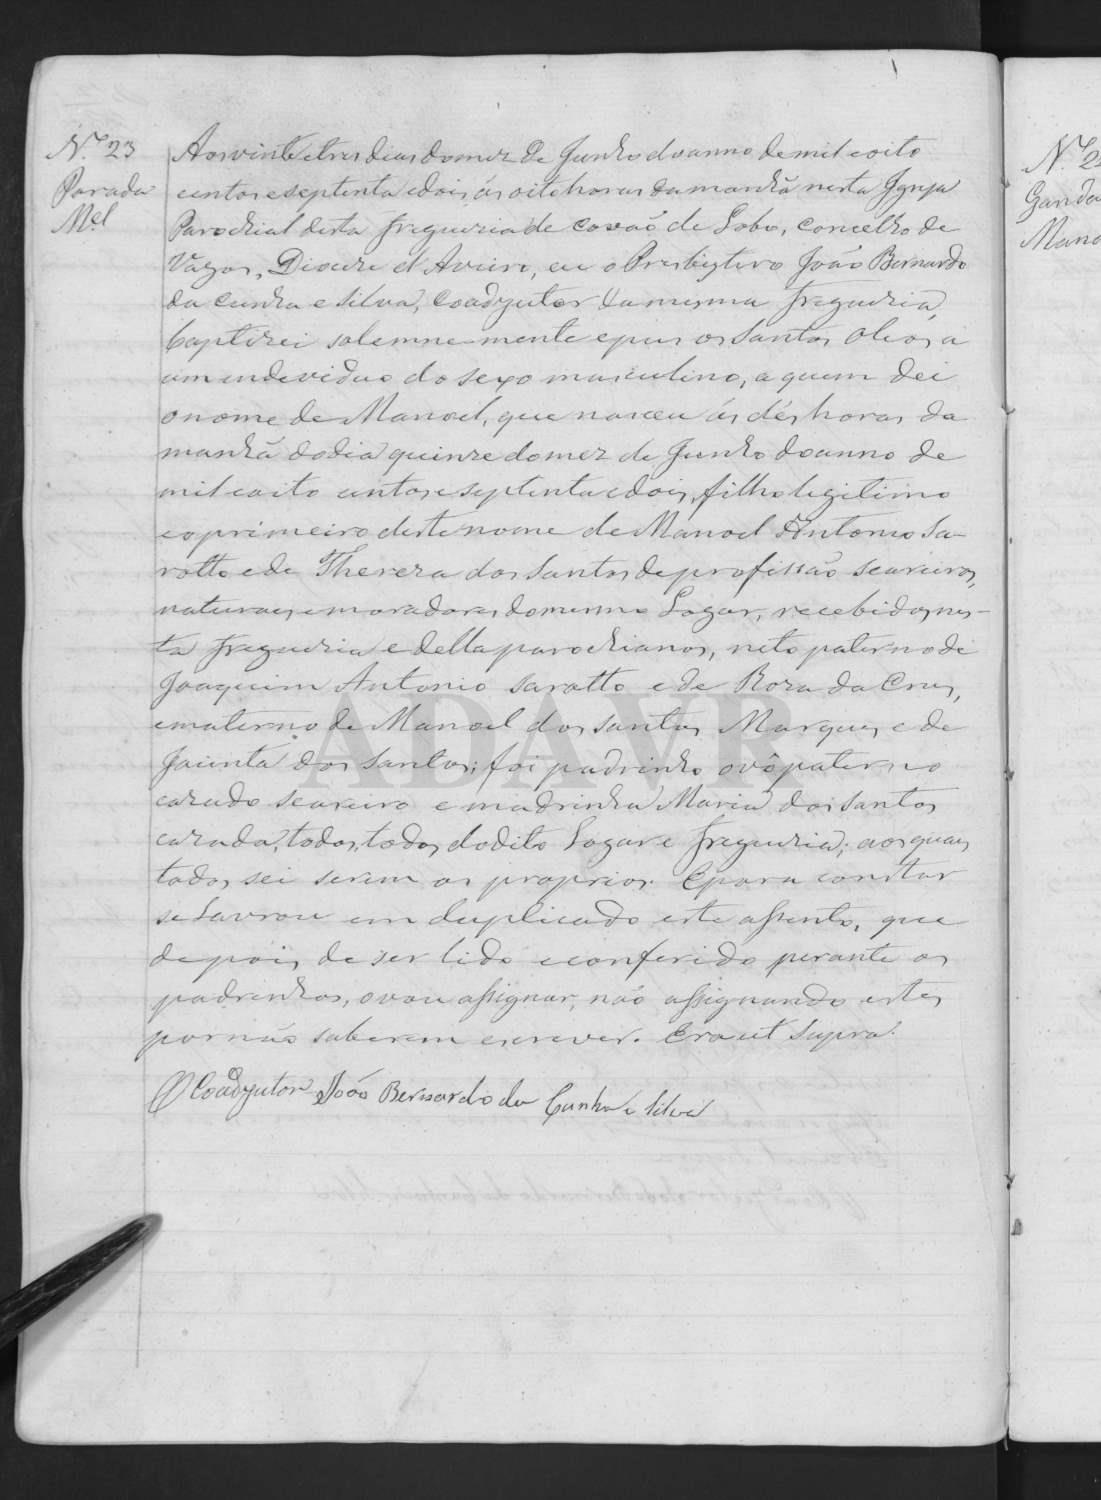 N.º 23
Parada
M.el
Aos vinte e tres dias do mez de Junho do anno de mil e oito
centos e septenta e dois ás oito horas da manhã nesta Igreja
Parochial desta freguezia de Covão de Lobo, Concelho de
Vagos, Diocese d'Aveiro, eu o Presbytero João Bernardo
da Cunha e Silva, Coadjutor da mesma freguezia,
baptizei solemne-mente e pus os Santos Oleos a
um individuo do sexo masculino, a quem dei
o nome de Manoel, que nasceu ás dés horas da
manhã do dia quinze do mez de Junho do anno de
mil e oito centos e septenta e dois, filho legitimo
e o primeiro deste nome de Manoel Antonio Sa-
rotto e de Thereza dos Santos de profissão seareiros,
naturaes e moradores do mesmo Logar, recebidos nes-
ta freguezia e della parochianos, neto paterno de
Joaquim Antonio Sarotto e de Roza da Crus,
e materno de Manoel dos Santos Marques e de
Jacinta dos Santos; foi padrinho o vô paterno
cazado seareiro e madrinha Maria dos Santos
cazada, todos, todos do dito Logar e freguezia; aos quaes
todos sei serem os proprios. E para constar
se Lavrou em duplicado este assento, que
depois de ser lido e conferido perante os
padrinhos, o vou assignar, não assignando estes
por não saberem escrever. Era ut supra.
O Coadjutor João Bernardo da Cunha e Silva
ADAVR
N.º 2
Ganda
Mano